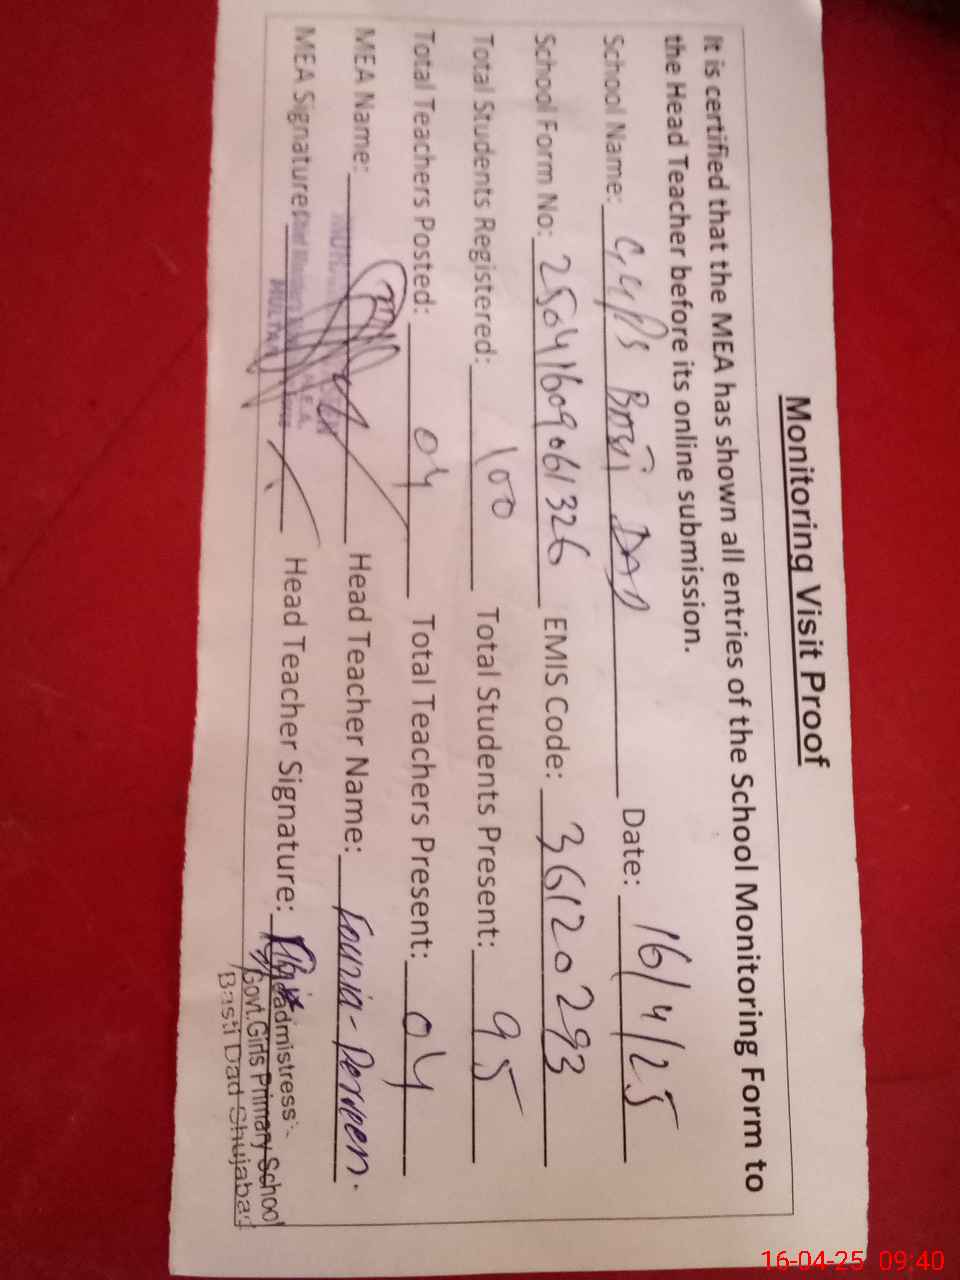 Monitoring Visit Proof
It is certified that the MEA has shown all entries of the School Monitoring Form to
the Head Teacher before its online submission.
School Name: GGPS Basti DAD Date: 16/4/25
School Form No: 2504160906 1326 EMIS Code: 36120293
Total Students Registered: 100 Total Students Present: 95
Total Teachers Posted: 04 Total Teachers Present: 04
MEA Name: Head Teacher Name: Fouzia-Perveen.
MEA Signature: Head Teacher Signature:
Headmistress
Govt.Girls Primary School
Basti Dad Shujabad
MULTAN
16-04-25 09:40